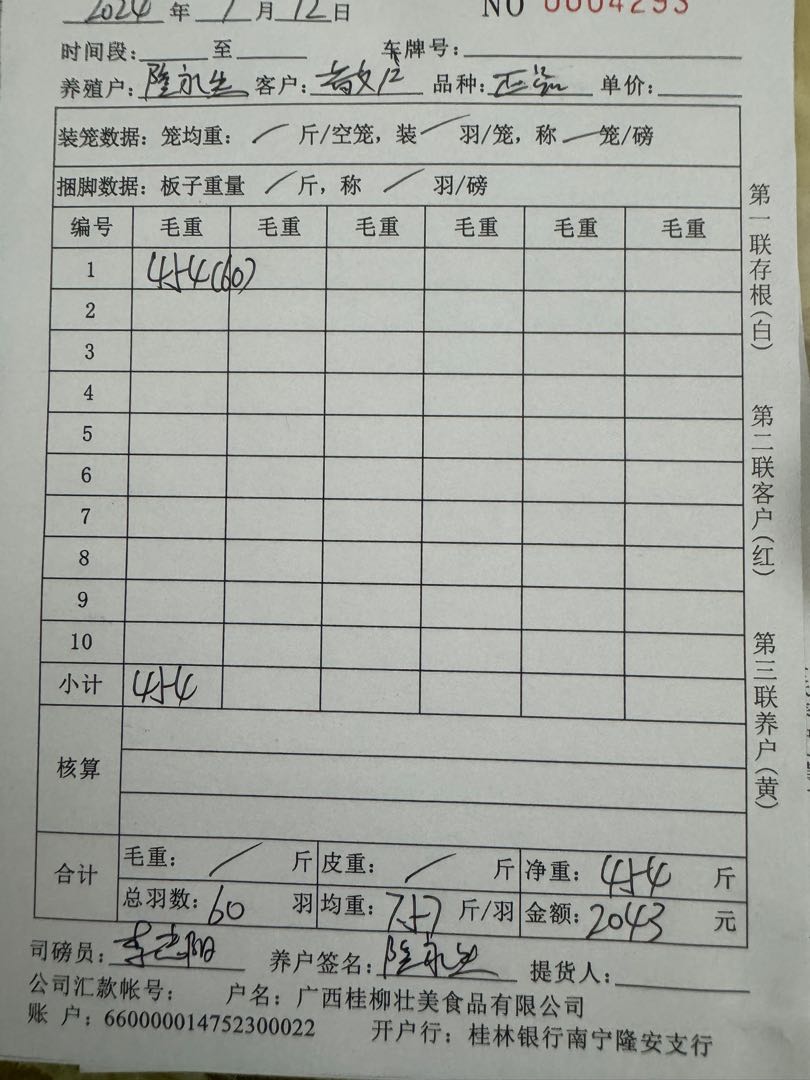 2024 年 1 月 12 日 NO 0004293
时间段: 至 车牌号:
养殖户: 隆永生 客户: 品种: 正品 单价:
装笼数据: 笼均重: / 斤/空笼, 装 / 羽/笼, 称 / 笼/磅
捆脚数据: 板子重量 / 斤, 称 / 羽/磅
编号 毛重 毛重 毛重 毛重 毛重 毛重
1 454(60)
2
3
4
5
6
7
8
9
10
小计 454
核算
合计 毛重: / 斤 皮重: / 斤 净重: 454 斤
总羽数: 60 羽 均重: 7.57 斤/羽 金额: 2043 元
司磅员: 养户签名: 隆永生 提货人:
公司汇款帐号: 户名: 广西桂柳壮美食品有限公司
账 户: 660000014752300022 开户行: 桂林银行南宁隆安支行
第一联存根(白) 第二联客户(红) 第三联养户(黄)